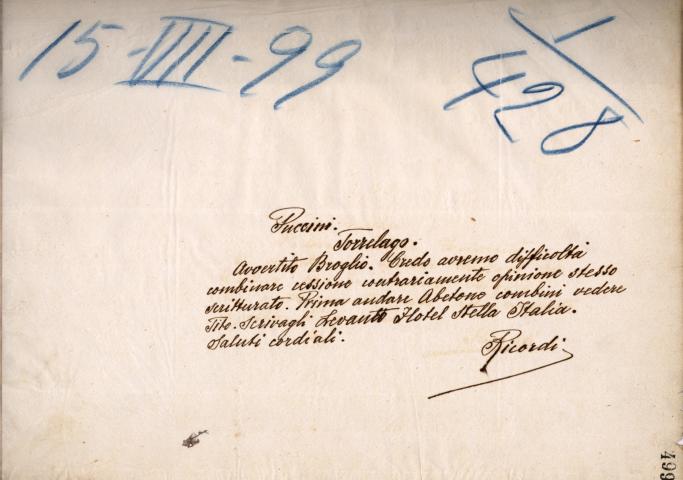 15-VIII-99
1/428
Puccini.
Torrelago.
Avvertito Broglio. Credo avremo difficoltà
combinare cessione contrariamente opinione stesso
scritturato. Prima andare Abetone combini vedere
Tito. Scrivagli Levanto Hotel Stella Italia.
Saluti cordiali.
Ricordi
499